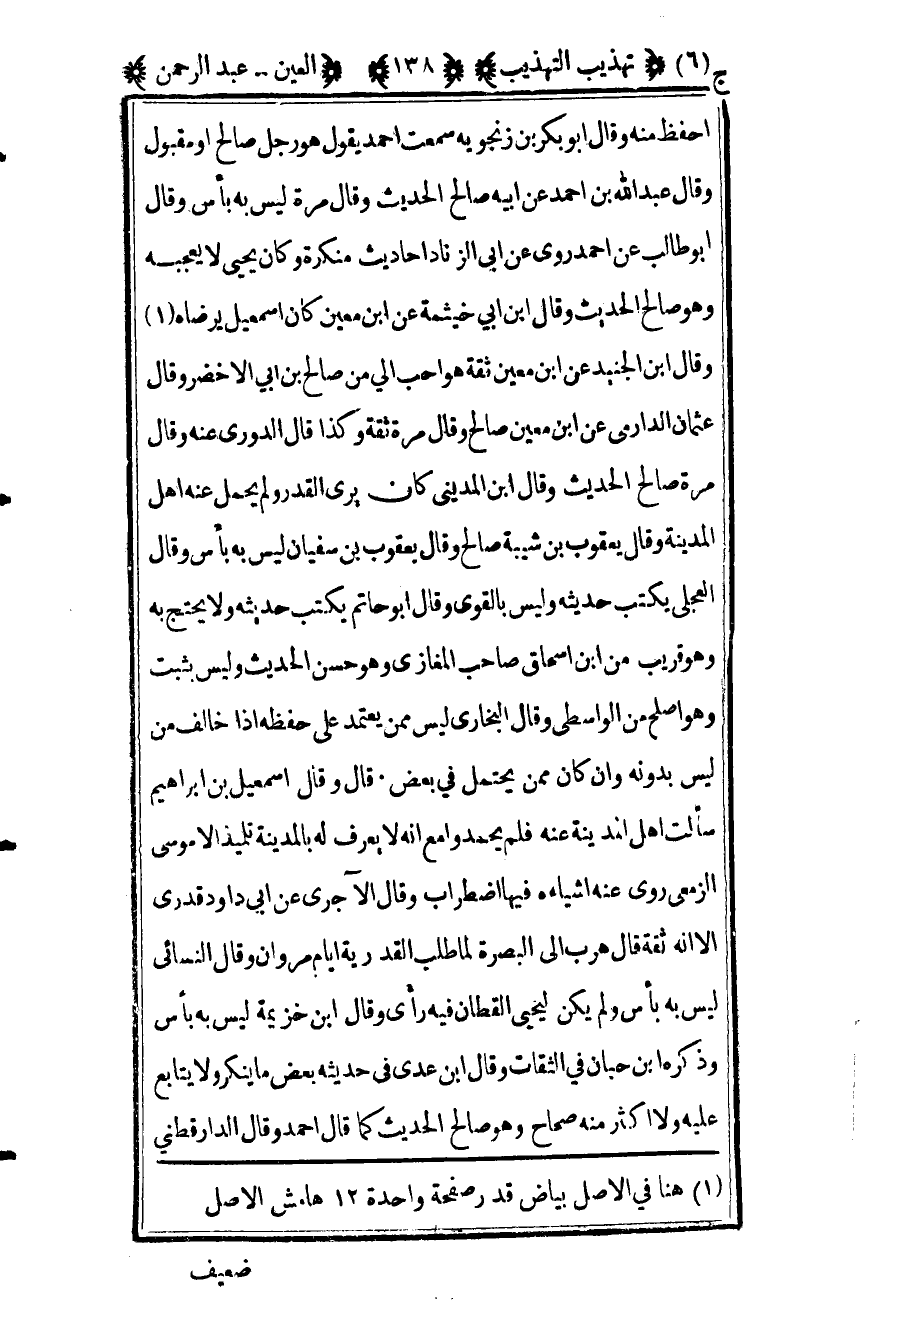 ج (٦) ﴿ تهذيب التهذيب ﴾ ﴿ ١٣٨ ﴾ ﴿ العين -- عبد الرحمن ﴾
احفظ منه وقال ابو بكر بن زنجويه سمعت احمد يقول هو رجل صالح او مقبول
وقال عبد الله بن احمد عن ابيه صالح الحديث وقال مرة ليس به بأس وقال
ابو طالب عن احمد روى عن ابى الزناد احاديث منكرة وكان يحيى لا يعجبه
وهو صالح الحديث وقال ابن ابي خيثمة عن ابن معين كان اسمعيل يرضاه (١)
وقال ابن الجنيد عن ابن معين ثقة هو احب الي من صالح بن ابي الاخضر وقال
عثمان الدارمى عن ابن معين صالح وقال مرة ثقة وكذا قال الدورى عنه وقال
مرة صالح الحديث وقال ابن المدينى كان يرى القدر ولم يحمل عنه اهل
المدينة وقال يعقوب بن شيبة صالح وقال يعقوب بن سفيان ليس به بأس وقال
العجلى يكتب حديثه وليس بالقوى وقال ابو حاتم يكتب حديثه ولا يحتج به
وهو قريب من ابن اسحاق صاحب المغازى وهو حسن الحديث وليس بثبت
وهو اصلح من الواسطى وقال البخارى ليس ممن يعتمد على حفظه اذا خالف من
ليس بدونه وان كان ممن يحتمل في بعض . قال وقال اسمعيل بن ابراهيم
سألت اهل المدينة عنه فلم يحمدوا مع انه لا يعرف له بالمدينة تلميذ الا موسى
الزمعى روى عنه اشياء فيها اضطراب وقال الآجرى عن ابى داود قدرى
الا انه ثقة قال هرب الى البصرة لما طلب القدرية ايام مروان وقال النسائى
ليس به بأس ولم يكن ليحيى القطان فيه رأى وقال ابن خزيمة ليس به بأس
وذكره ابن حبان في الثقات وقال ابن عدى فى حديثه بعض ما ينكر ولا يتابع
عليه والاكثر منه صحاح وهو صالح الحديث كما قال احمد وقال الدارقطني
(١) هنا في الاصل بياض قدر صفحة واحدة ١٢ هامش الاصل
ضعيف